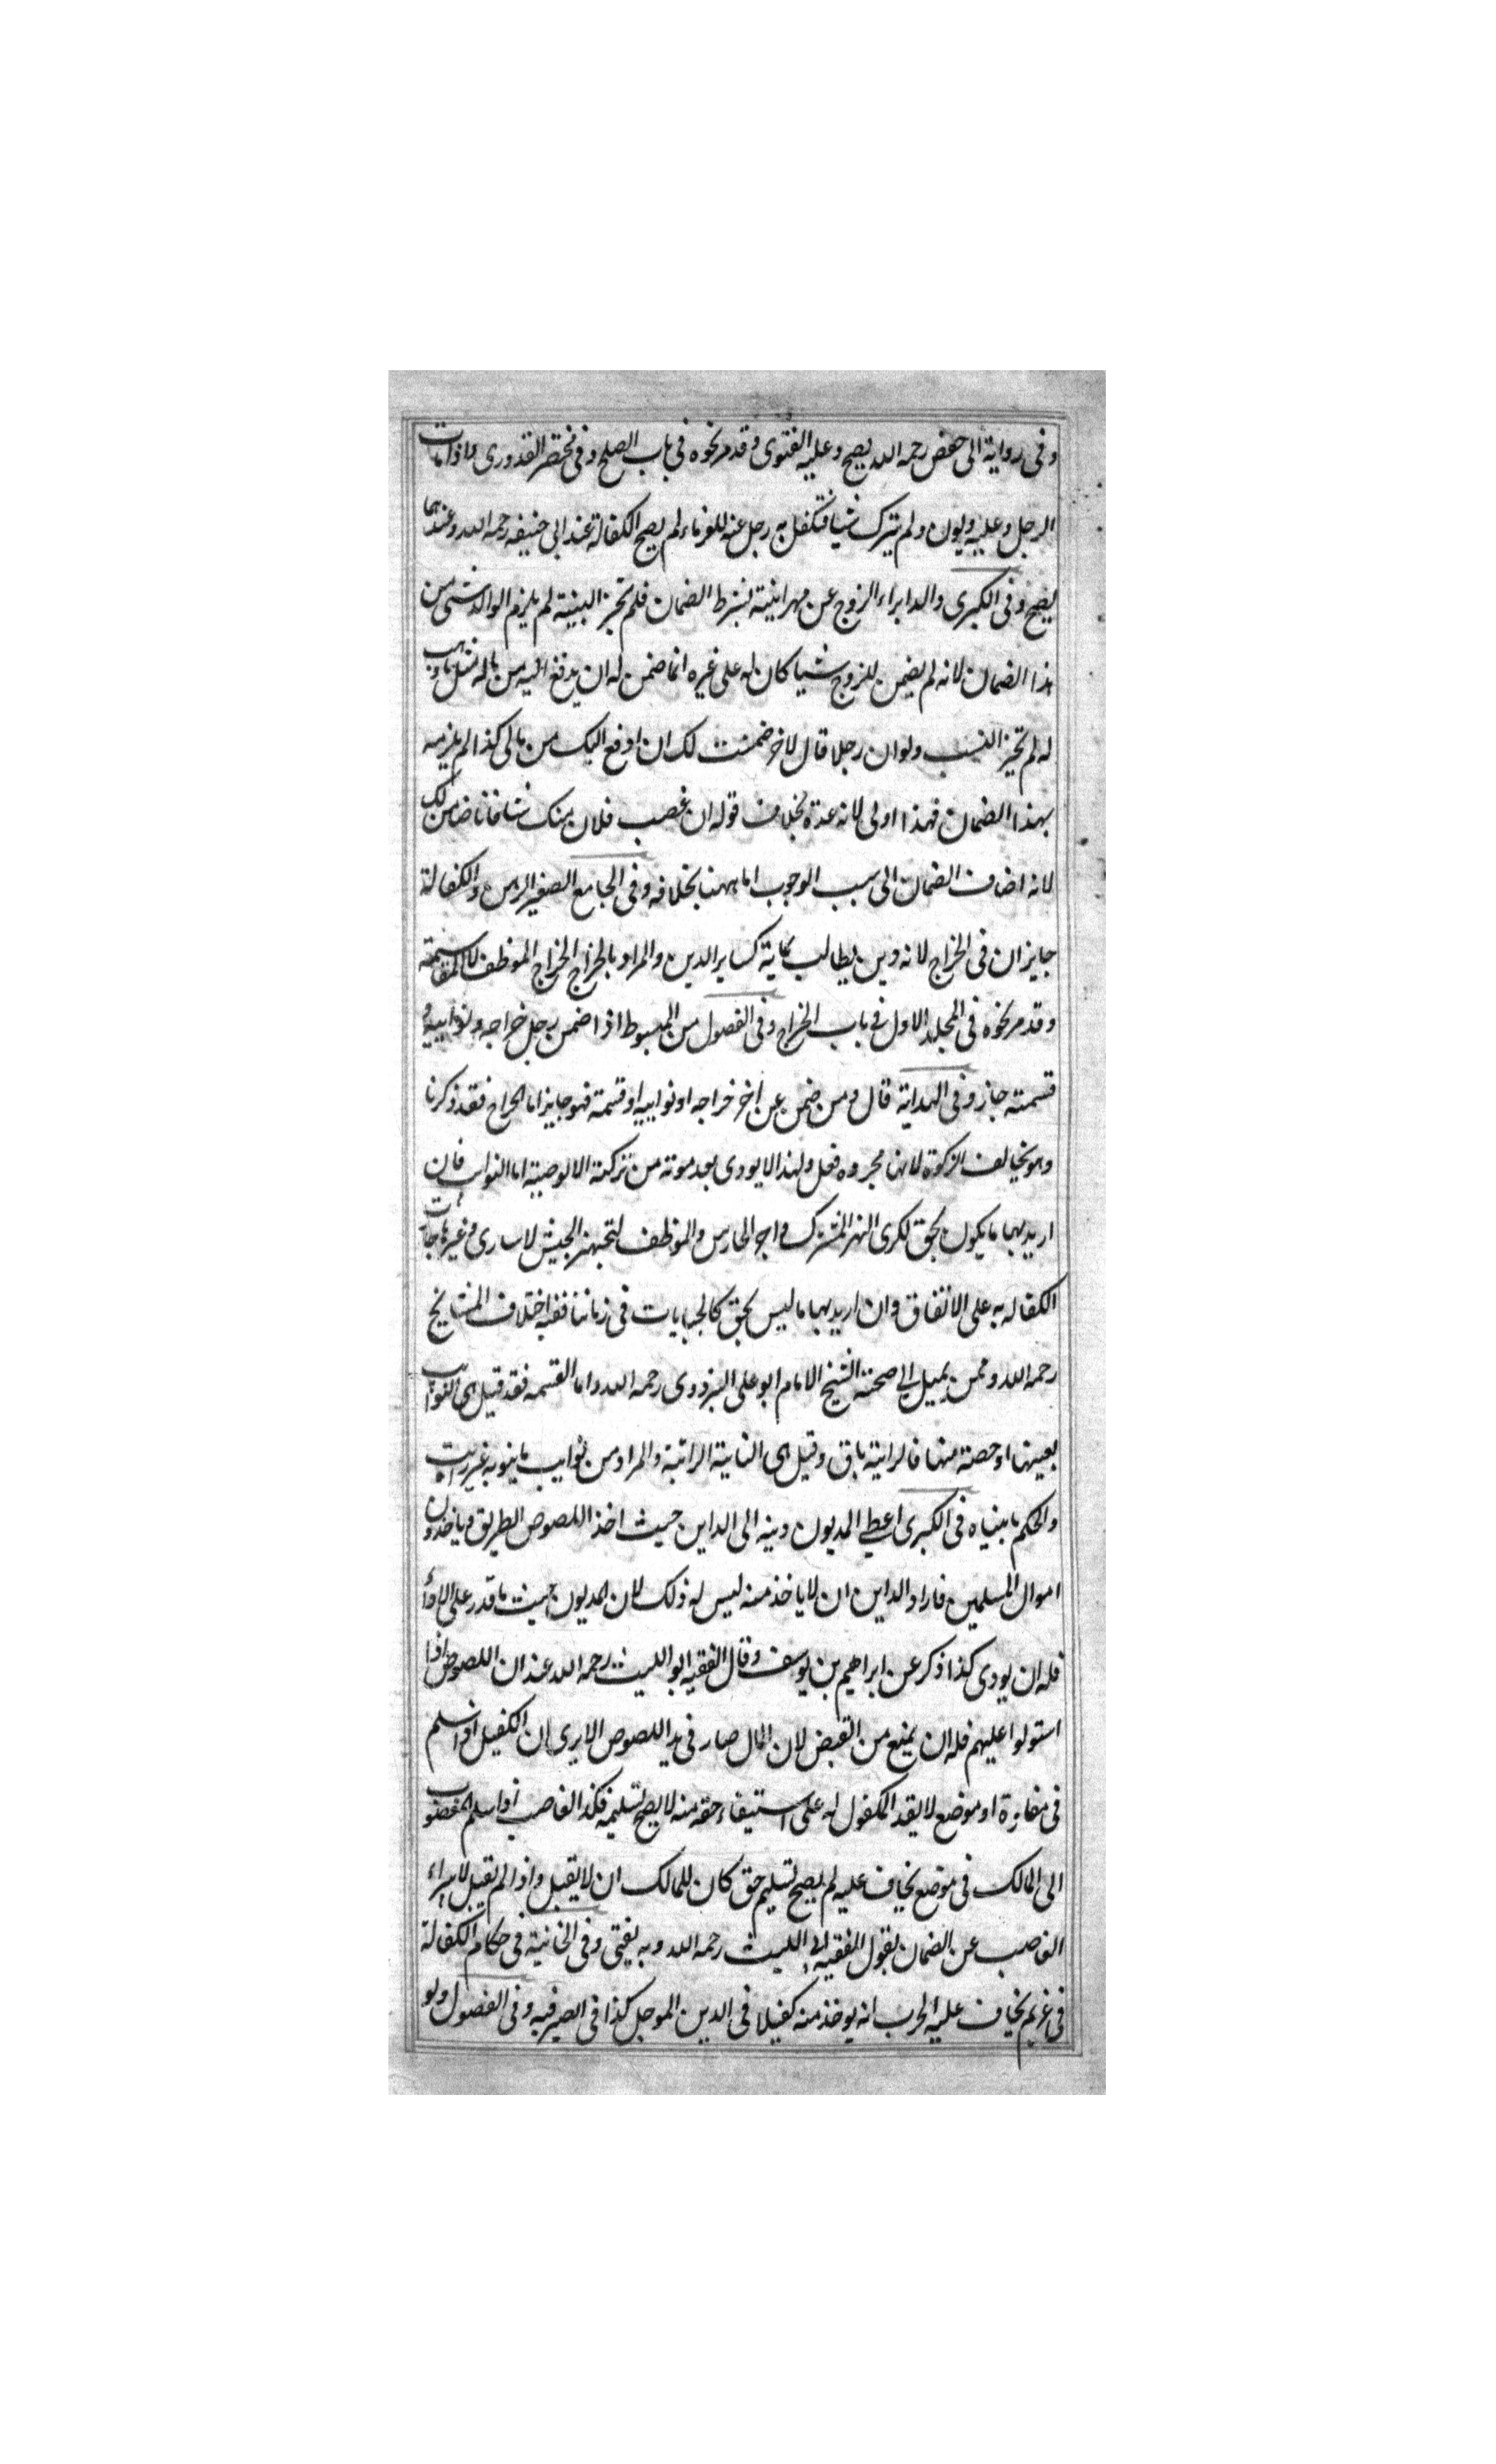 وفى رواية ابى حفص رحمه الله يصح وعليه الفتوى وقد مر نحوه فى باب الصلح وفى مختصر القدورى واذا مات
الرجل وعليه ديون ولم يترك شيا فتكفل به رجل عنه للغرماء لم يصح الكفالة عند ابى حنيفه رحمه الله وعندهما
يصح وفى الكبرى والد ابراء الزوج عن مهر ابنته بشرط الضمان فلم تجز البنية لم يلزم الوالد شى من
هذا الضمان لانه لم يضمن للزوج شيا كان له على غيره انما ضمن له ان يدفع اليه من ماله مثل ما وهب
له لم تجيز ولو ان رجلا قال لاخر ضمنت لك ان ادفع اليك من مالى كذا لم يلزمه
بهذا الضمان فهذا اولى لانه عدة بخلاف قوله ان غصب فلان منك شا فانا ضامن لك
لانه اضاف الضمان الى سبب الوجوب اما ههنا بخلافه وفى الجامع الصغير الرهن والكفالة
جايزان فى الخراج لانه دين يطالب به كساير الدين والمراد بالخراج الخراج الموظف لا المقاسمة
وقد مر نحوه فى المجلد الاول فى باب الخراج وفى الفصول من المبسوط اذا ضمن رجل خراجه ونوايبه و
قسمته جاز وفى الهداية قال ومن ضمن عن اخر خراجه او نوايبه او قسمة فهو جايز اما الخراج فقد ذكرنا
وهو يخالف الزكوة لانها مجرده فعل ولهذا لا يودى بعد موته من تركته الا لوصية اما النوايب فان
اريد بها ما يكون بحق لكرى النهر المشترك واجر الحارس والموظف لتجهيز الجيش لاسارى وغيرها جازت
الكفاله به على الاتفاق وان اريد بها ما ليس بحق كالجبايات فى زماننا ففيه اختلاف المشايخ
رحمه الله وممن يميل الى صحته الشيخ الامام ابو على البزدوى رحمه الله واما القسمه فقد قيل هى النوايب
بعينها او حصة منها فالرانية باق وقيل هى النايبة الراتبة والمراد من نوايب ما ينوبه غير راتب
والحكم ما بيناه فى الكبرى اعطى المديون دينه الى الداين حيث اخذ اللصوص الطريق وياخذون
اموال المسلمين فاراد الداين ان لا ياخذ منه ليس له ذلك لان المديون حيث ما قدر على الادا
فله ان يودى كذا ذكر عن ابراهيم بن يوسف وقال الفقيه ابو الليث رحمه الله عند ان اللصوص اذا
استولوا عليهم فله ان يمنع من القبض لان المال صار فى يد اللصوص الا يرى ان الكفيل اذا سلم
فى مفازة او موضع لا يقد المكفول له على استيفاء حقه منه لا يصح تسليمه فكذا الغاصب اذا سلم المغصوب
الى المالك فى موضع يخاف عليه لم يصح تسليم حق كان للمالك ان لا يقبل واذا لم يقبل لا يبراء
الغاصب عن الضمان بقول الفقيه ابى الليث رحمه الله وبه يفتى وفى الخانية فى حكام الكفالة
فى غريم يخاف عليه الحرب انه يوخذ منه كفيلا فى الدين الموجل كذا فى الصيرفيه وفى الفصول ولو